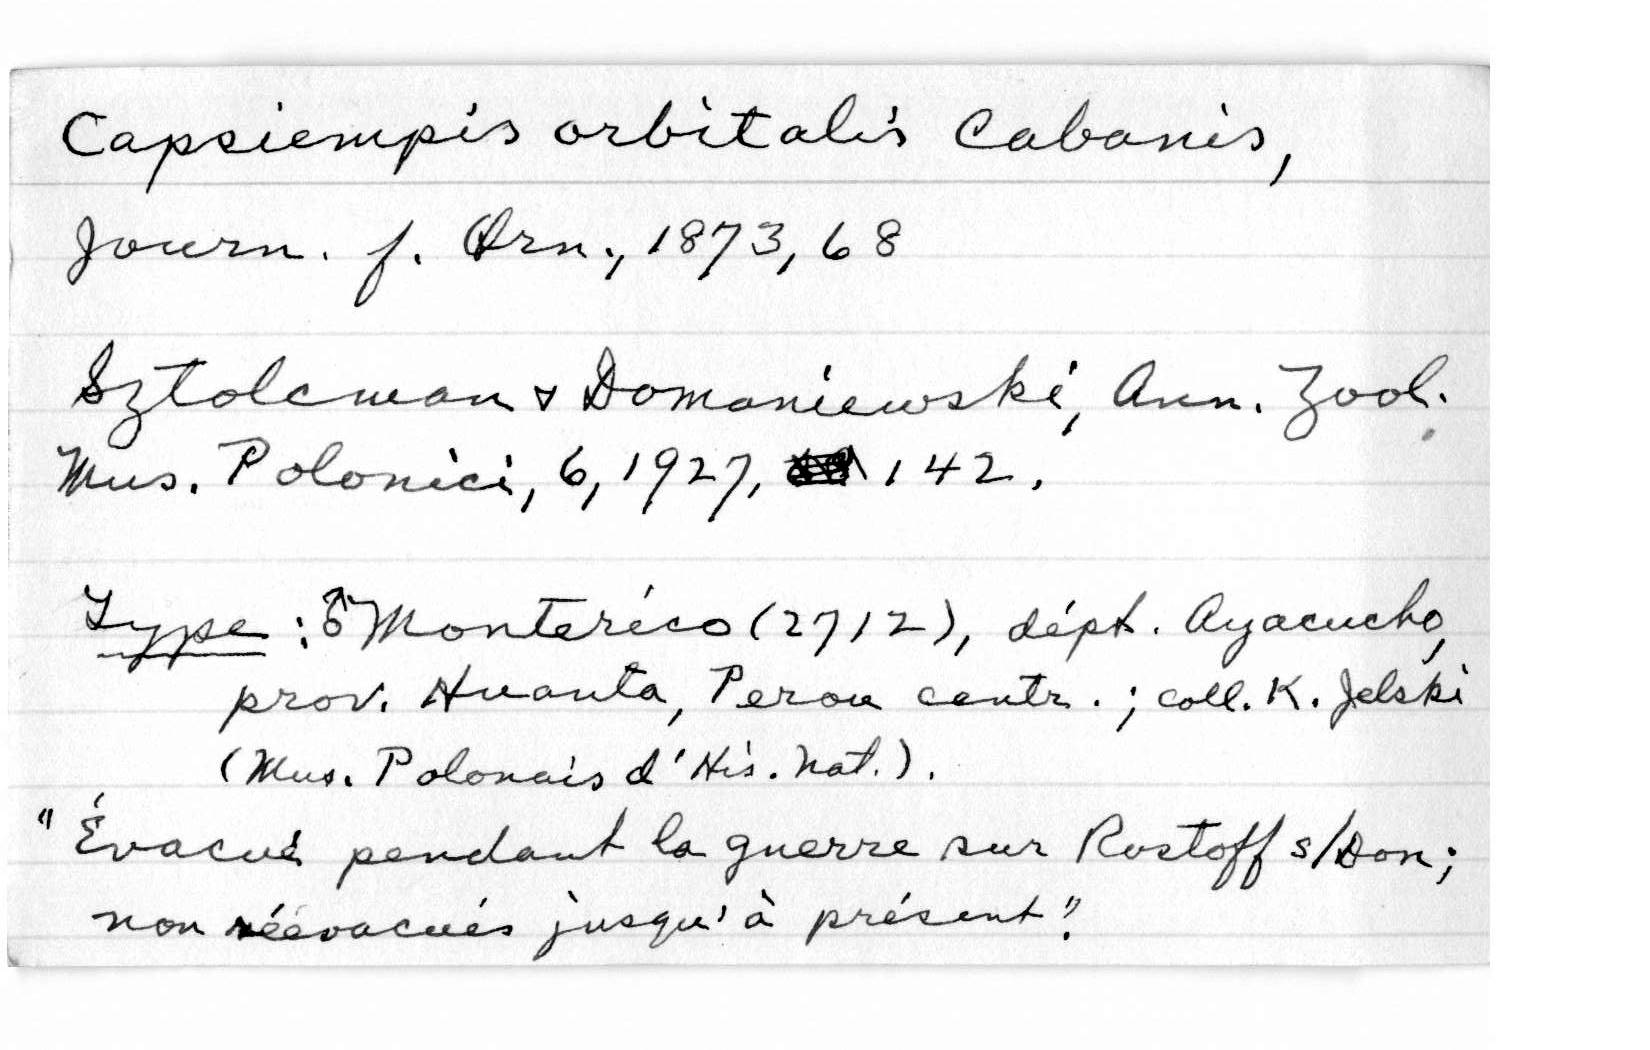 Capsiempis orbitalis Cabanis,
Journ. f. Orn., 1873, 68
Sztolcman & Domaniewski, Ann. Zool.
Mus. Polonici, 6, 1927, 142.
Type: ♂ Monterico (2712), dépt. Ayacucho,
prov. Huanta, Perou centr.; coll. K. Jelski
(Mus. Polonais d'His. Nat.).
"Évacué pendant la guerre sur Rostoff s/Don;
non réévacués jusqu'à présent".